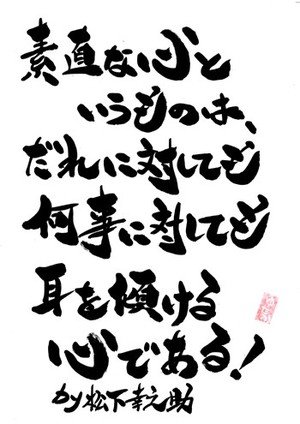 素直な心と
いうものは、
だれに対しても
何事に対しても
耳を傾ける
心である!
by松下幸之助